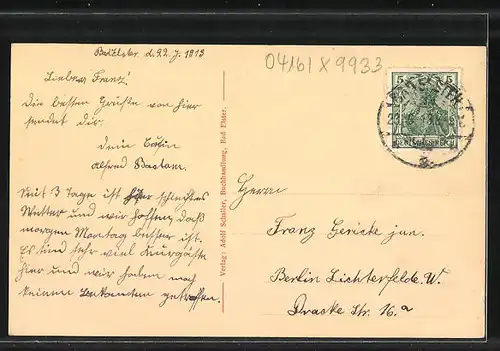 Bad Elster d. 22. J. 1913
04161 X 9933
Lieber Franz!
Die besten Grüße von hier
sendet dir
dein Cousin
Alfred
Seit 3 Tage ist hier schlechtes
Wetter und wir hoffen, daß
morgen Montag besser ist.
Es sind sehr viel Kurgäste
hier und wir haben noch
keinen Bekannten getroffen.
Verlag: Adolf Schuster, Buchhandlung, Bad Elster.
5 5
DEUTSCHES REICH
Herrn
Franz Gericke jun.
Berlin Lichterfelde. W.
Dracke Str. 16.a